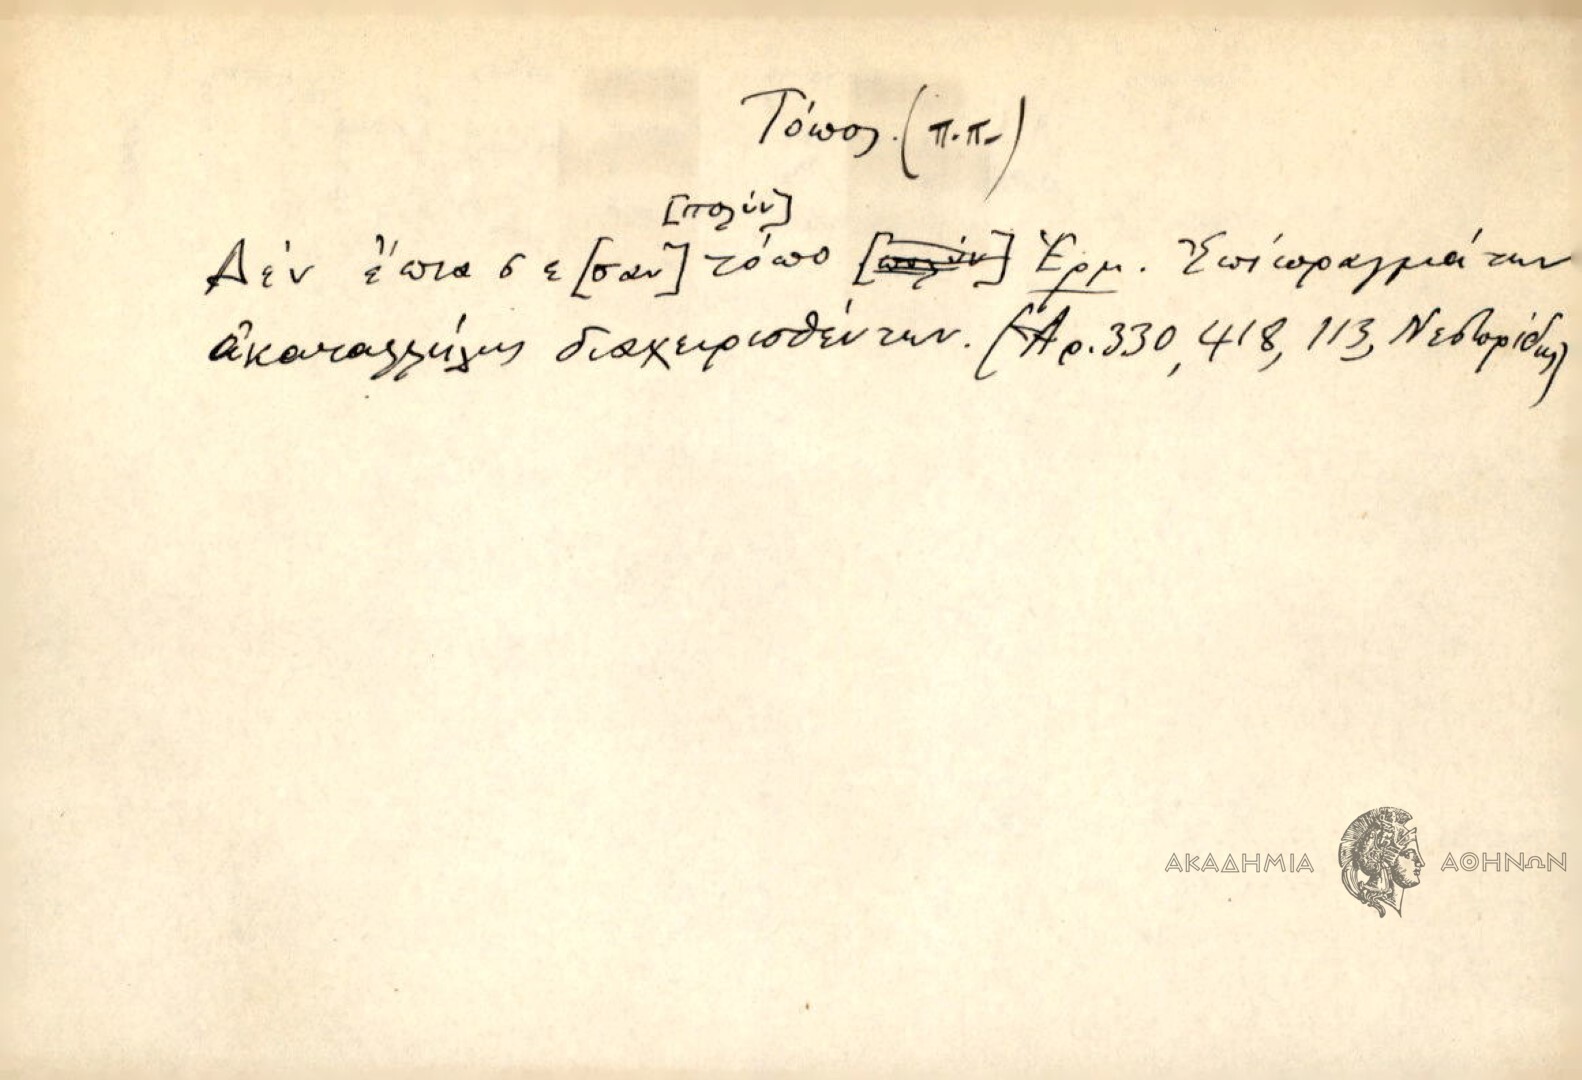 Τόπος. (π.π.)
[πολύν]
Δέν ἔπιασε [σαν] τόπο [πολύν] Ἑρμ. Ἐπί πραγμάτων
ἀκαταλλήλως διαχειρισθέντων. (Ἀρ. 330, 418, 113, Νεστορίδης)
ΑΚΑΔΗΜΙΑ ΑΘΗΝΩΝ